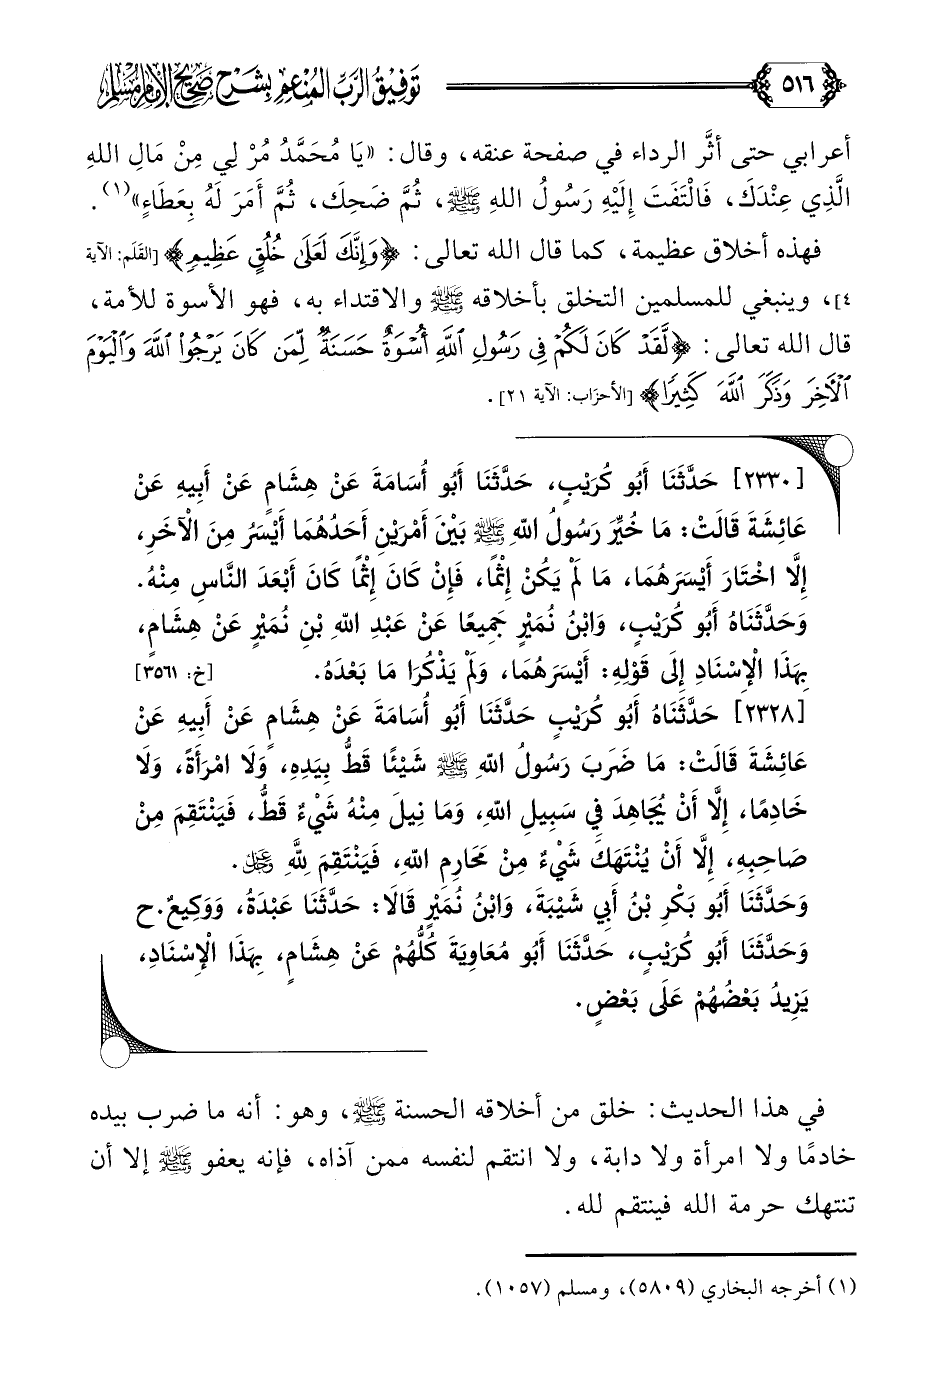 ٥١٦
توفيق الرب المنعم بشرح صحيح الإمام مسلم
أعرابي حتى أثَّر الرداء في صفحة عنقه، وقال: «يَا مُحَمَّدُ مُرْ لِي مِنْ مَالِ اللهِ
الَّذِي عِنْدَكَ، فَالْتَفَتَ إِلَيْهِ رَسُولُ اللهِ ﷺ، ثُمَّ ضَحِكَ، ثُمَّ أَمَرَ لَهُ بِعَطَاءٍ»(١).
فهذه أخلاق عظيمة، كما قال الله تعالى: ﴿وَإِنَّكَ لَعَلَىٰ خُلُقٍ عَظِيمٍ﴾ [القَلَم: الآية
٤]، وينبغي للمسلمين التخلق بأخلاقه ﷺ والاقتداء به، فهو الأسوة للأمة،
قال الله تعالى: ﴿لَّقَدْ كَانَ لَكُمْ فِي رَسُولِ ٱللَّهِ أُسْوَةٌ حَسَنَةٌ لِّمَن كَانَ يَرْجُوا۟ ٱللَّهَ وَٱلْيَوْمَ
ٱلْأَخِرَ وَذَكَرَ ٱللَّهَ كَثِيرًا﴾ [الأحزَاب: الآية ٢١].
[٢٣٣٠] حَدَّثَنَا أَبُو كُرَيْبٍ، حَدَّثَنَا أَبُو أُسَامَةَ عَنْ هِشَامٍ عَنْ أَبِيهِ عَنْ
عَائِشَةَ قَالَتْ: مَا خُيِّرَ رَسُولُ اللهِ ﷺ بَيْنَ أَمْرَيْنِ أَحَدُهُمَا أَيْسَرُ مِنَ الْآخَرِ،
إِلَّا اخْتَارَ أَيْسَرَهُمَا، مَا لَمْ يَكُنْ إِثْمًا، فَإِنْ كَانَ إِثْمًا كَانَ أَبْعَدَ النَّاسِ مِنْهُ.
وَحَدَّثَنَاهُ أَبُو كُرَيْبٍ، وَابْنُ نُمَيْرٍ جَمِيعًا عَنْ عَبْدِ اللهِ بْنِ نُمَيْرٍ عَنْ هِشَامٍ،
بِهَذَا الْإِسْنَادِ إِلَى قَوْلِهِ: أَيْسَرَهُمَا، وَلَمْ يَذْكُرَا مَا بَعْدَهُ. [خ: ٣٥٦١]
[٢٣٢٨] حَدَّثَنَاهُ أَبُو كُرَيْبٍ حَدَّثَنَا أَبُو أُسَامَةَ عَنْ هِشَامٍ عَنْ أَبِيهِ عَنْ
عَائِشَةَ قَالَتْ: مَا ضَرَبَ رَسُولُ اللهِ ﷺ شَيْئًا قَطُّ بِيَدِهِ، وَلَا امْرَأَةً، وَلَا
خَادِمًا، إِلَّا أَنْ يُجَاهِدَ فِي سَبِيلِ اللهِ، وَمَا نِيلَ مِنْهُ شَيْءٌ قَطُّ، فَيَنْتَقِمَ مِنْ
صَاحِبِهِ، إِلَّا أَنْ يُنْتَهَكَ شَيْءٌ مِنْ مَحَارِمِ اللهِ، فَيَنْتَقِمَ لِلَّهِ عز وجل.
وَحَدَّثَنَا أَبُو بَكْرِ بْنُ أَبِي شَيْبَةَ، وَابْنُ نُمَيْرٍ قَالَا: حَدَّثَنَا عَبْدَةُ، وَوَكِيعٌ.ح
وَحَدَّثَنَا أَبُو كُرَيْبٍ، حَدَّثَنَا أَبُو مُعَاوِيَةَ كُلُّهُمْ عَنْ هِشَامٍ، بِهَذَا الْإِسْنَادِ،
يَزِيدُ بَعْضُهُمْ عَلَى بَعْضٍ.
في هذا الحديث: خلق من أخلاقه الحسنة ﷺ، وهو: أنه ما ضرب بيده
خادمًا ولا امرأة ولا دابة، ولا انتقم لنفسه ممن آذاه، فإنه يعفو ﷺ إلا أن
تنتهك حرمة الله فينتقم لله.
(١) أخرجه البخاري (٥٨٠٩)، ومسلم (١٠٥٧).